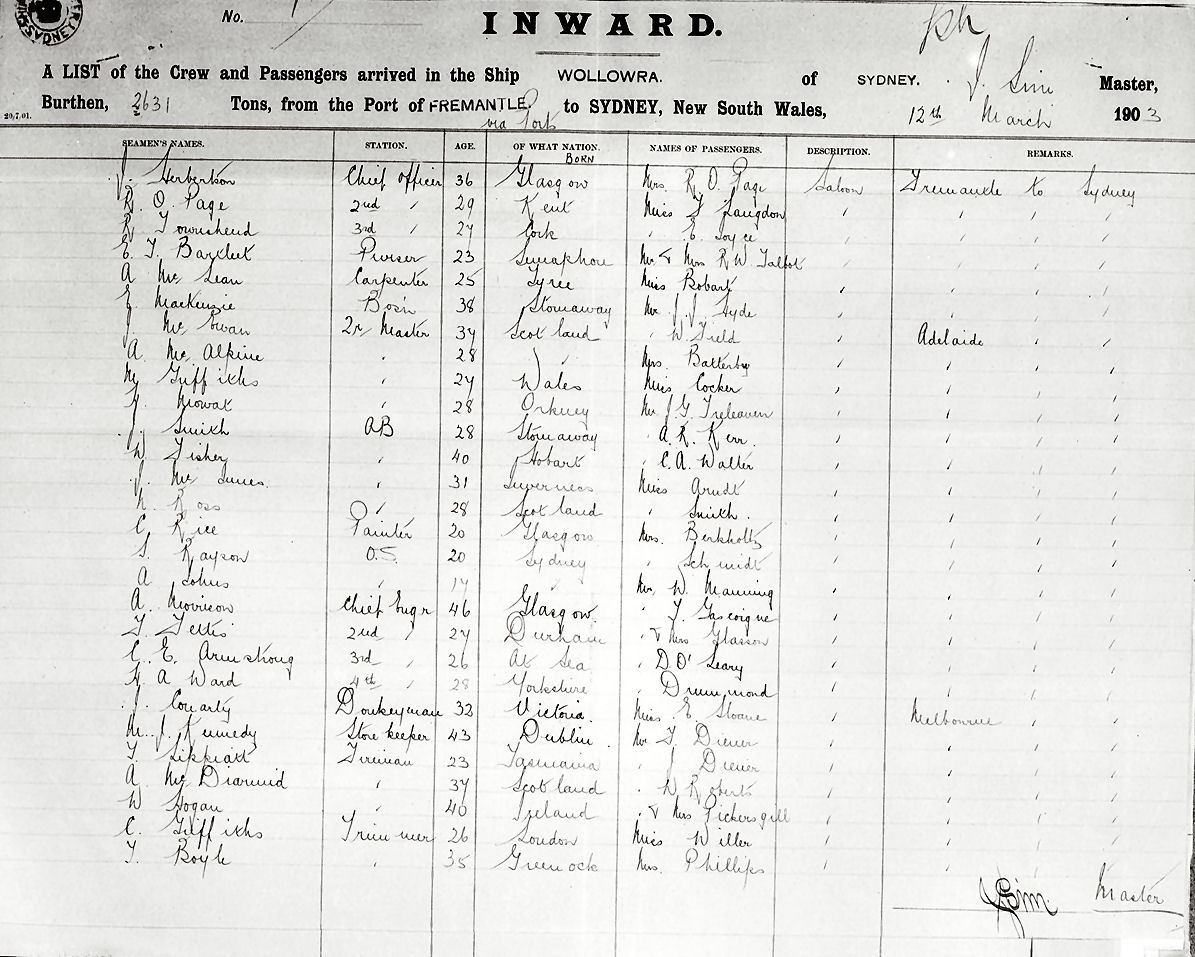 SYDNEY
No.
INWARD.
A LIST of the Crew and Passengers arrived in the Ship WOLLOWRA. of SYDNEY. J. Sim Master,
Burthen, 2631 Tons, from the Port of FREMANTLE to SYDNEY, New South Wales, 12th March 1903
20.7.01.
via Ports
SEAMEN'S NAMES. STATION. AGE. OF WHAT NATION. NAMES OF PASSENGERS. DESCRIPTION. REMARKS.
BORN
J. Herbertson Chief Officer 36 Glasgow Mrs. R. O. Page Saloon Fremantle to Sydney
R. O. Page 2nd " 29 Kent Miss F Langdon " " " "
R Townshend 3rd " 27 Cork " E. Joyce " " " "
E T. Bartlett Purser 23 Semaphore Mr. & Mrs R. W. Talbot " " " "
A Mc Lean Carpenter 25 Tyree Miss Robart " " " "
E. MacKenzie Bos'n 38 Stornaway Mr. J. J. Hyde " " " "
J. Mc Ewan Qr Master 37 Scotland " W. Field " Adelaide " "
A. Mc Alpine " 28 " Mrs. Battenby " " " "
M Griffiths " 27 Wales Miss Cocker " " " "
J. Mowat " 28 Orkney Mr. J. G. Treleaven " " " "
J. Smith AB 28 Stornaway " A. R. Kerr. " " " "
W. Fisher " 40 Hobart " C. A. Walter " " " "
J. Mc Innes. " 31 Inverness Miss Arndt " " " "
N. Ross " 28 Scotland " Smith. " " " "
C Rice Painter 20 Glasgow Mrs. Berkholtz " " " "
S. Rayson O.S. 20 Sydney " Schmidt " " " "
A Johns " 17 " Mr. W. Manning " " " "
A. Morrison Chief Engr 46 Glasgow. " T. Gascoigne " " " "
T. Tettis 2nd " 27 Durham " & Mrs Glasson " " " "
C. E. Armstrong 3rd " 26 At Sea " D O'Leary " " " "
H. A Ward 4th " 28 Yorkshire " Drummond " " " "
J. Conarty Donkeyman 32 Victoria. Miss. E. Sloane " Melbourne " "
M. J. Kennedy Store keeper 43 Dublin. Mr F. Diener " " " "
T. Lippiatt Fireman 23 Tasmania " J Diener " " " "
A Mc Diarmid " 37 Scotland " W Roberts " " " "
W Hogan " 40 Ireland " & Mrs Pickersgill " " " "
C. Griffiths Trimmer 26 London Miss Willer " " " "
T. Boyle " 35 Greenock Mrs. Phillips " " " "
J Sim Master